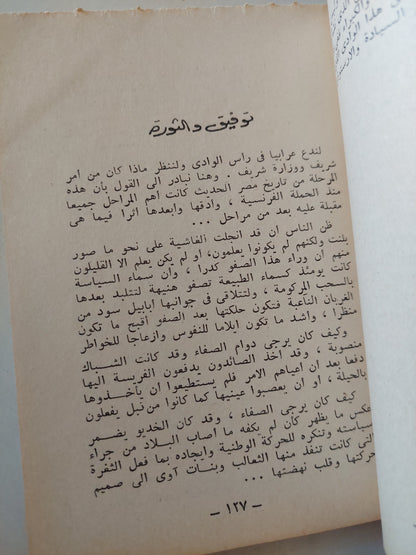 توفيق والثورة
لندع عرابيا فى راس الوادى ولننظر ماذا كان من أمر
شريف ووزارة شريف . وهنا نبادر الى القول بأن هذه
المرحلة من تاريخ مصر الحديث كانت أهم المراحل جميعا
منذ الحملة الفرنسية ، وأدقها وأبعدها أثرا فيما هى
مقبلة عليه بعد من مراحل ...
ظن الناس أن قد انجلت الغاشية على نحو ما صور
بلنت ولكنهم لم يكونوا يعلمون، او لم يكن يعلم الا القليلون
منهم أن وراء هذا الصفو كدرا ، وأن سماء السياسة
كانت يومئذ كسماء الطبيعة تصفو هنيهة لتتلبد بعدها
بالسحب المركومة ، ولتتلاقى فى جوانبها أبابيل سود من
الغربان الناعبة فتكون حلكتها بعد الصفو أقبح ما تكون
منظرا ، وأشد ما تكون ايلاما للنفوس وازعاجا للخواطر
وكيف كان يرجى دوام الصفاء وقد كانت الشباك
منصوبة ، وقد أخذ الصائدون يدفعون الفريسة اليها
دفعا بعد أن أعياهم الامر فلم يستطيعوا أن يأخذوها
بالحيلة ، أو أن يعصبوا عينيها كما كانوا من قبل يفعلون
كيف كان يرجى الصفاء ، وقد كان الخديو يضمر
عكس ما يظهر كان لم يكفه ما أصاب البلاد من جراء
سياسته وتنكره للحركة الوطنية وايجاده بما فعل الثغرة
التى كانت تنفذ منها الثعالب وبنات آوى الى صميم
حركتها وقلب نهضتها ...
— ١٢٧ —
هذا الوادى
السيادة